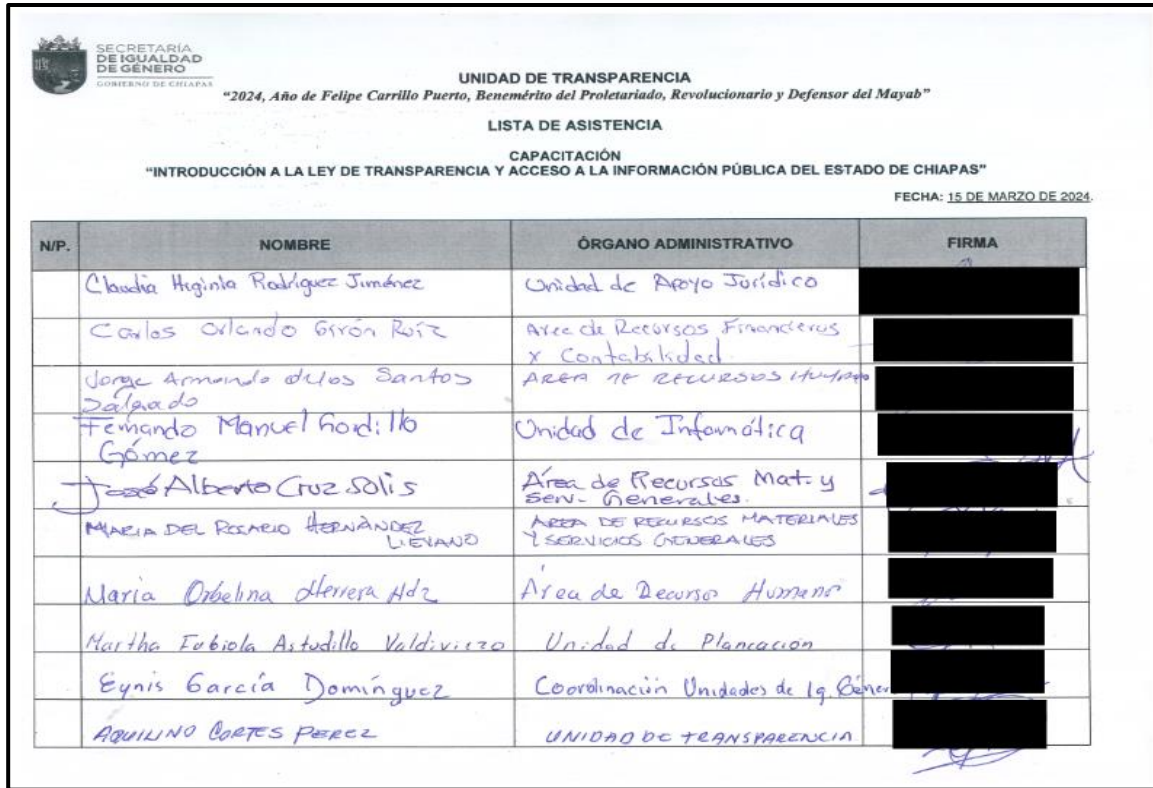 SECRETARÍA
DE IGUALDAD
DE GÉNERO
GOBIERNO DE CHIAPAS
UNIDAD DE TRANSPARENCIA
"2024, Año de Felipe Carrillo Puerto, Benemérito del Proletariado, Revolucionario y Defensor del Mayab"
LISTA DE ASISTENCIA
CAPACITACIÓN
"INTRODUCCIÓN A LA LEY DE TRANSPARENCIA Y ACCESO A LA INFORMACIÓN PÚBLICA DEL ESTADO DE CHIAPAS"
FECHA: 15 DE MARZO DE 2024.
N/P. NOMBRE ÓRGANO ADMINISTRATIVO FIRMA
Claudia Higinia Rodríguez Jiménez Unidad de Apoyo Jurídico
Carlos Orlando Girón Ruíz Area de Recursos Financieros
y Contabilidad.
Jorge Armando de los Santos AREA DE RECURSOS HUMANO
Salgado
Fernando Manuel Gordillo Unidad de Informática
Gómez
José Alberto Cruz Solis Área de Recursos Mat. y
Serv. Generales.
MARIA DEL ROSARIO HERNÁNDEZ AREA DE RECURSOS MATERIALES
LIEVANO Y SERVICIOS GENERALES
María Orbelina Herrera Hdz Área de Recurso Humano
Martha Fabiola Astudillo Valdiviezo Unidad de Planeación
Eynis García Domínguez Coordinación Unidades de Ig. Géner
AQUILINO CORTES PEREZ UNIDAD DE TRANSPARENCIA